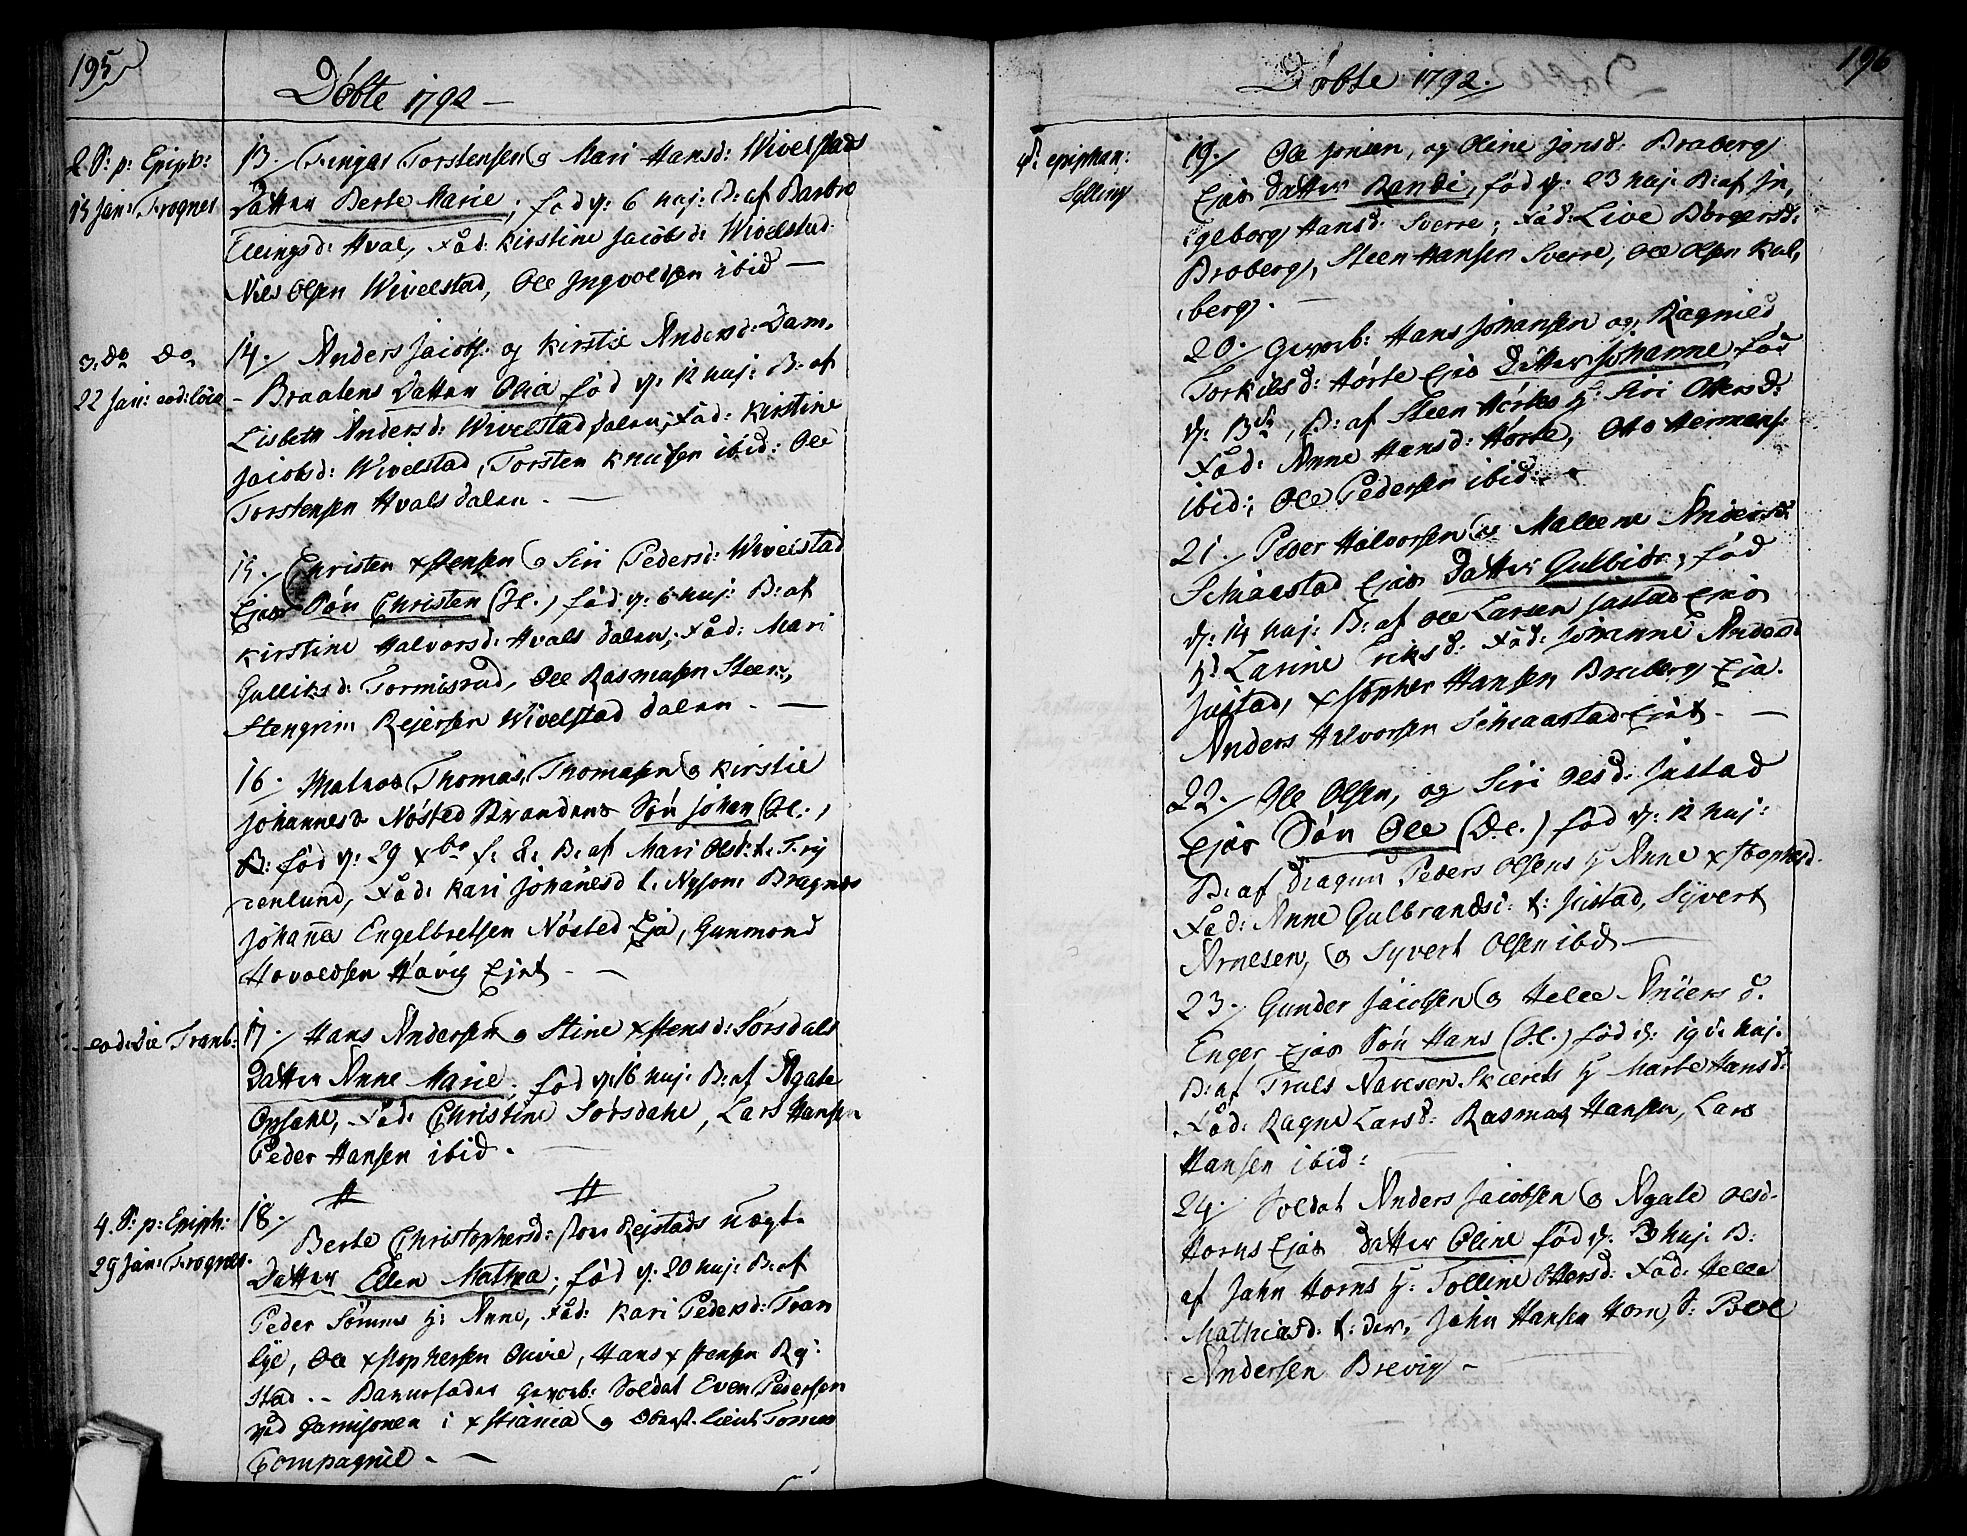 195
Døbte 1792 –
2 S: p: Epiph:
15 Jan: Frogner
13. Torstensen og Mari Hansd: Wivelstads
Datter Berte Marie, fød d: 6 huj: B: af Barbro
Ellingsd: Hval, Fad: Kirstine Jacobsd: Wivelstad
Niels Olsen Wivelstad, Ole Ingvoldsen ibid –
3. do do
22 Jan: eod: loco
14. Anders Jacobs: og Kirstie Andersd: Dam-
– Braatens Datter Olia fød d: 12 huj: B: af
Lisbeth Andersd: Wivelstad dalen, Fad: Kirstine
Jacobsd: Wivelstad, Torsten Knutsen ibid: Ole
Torstensen Hvals dalen. –
15. Christen Xstensen og Siri Pedersd: Wivelstad
Ejas Søn Christen (H.) fød d: 6 huj: B: af
Kirstine Halvorsd: Hvals dalen, Fad: Mari
Gulliksd: Tormisrud, Ole Rasmusen Steen,
Stengrim Rejersen Wivelstad dalen. –
16. Matros Thomas Thomasen og Kirstie
Johannesd Nøsted Strandens Søn Johan (H.)
B: fød d: 29 xbr f. B: af Mari Olsd: t. Fry
denlund, Fad: Kari Johanesd t. Bragnæs
Johannes Engelbretsen Nøsted Eja, Gunmond
Hovoldsen Høvig Ejet. –
eod: die Tranb:
17. Hans Andersen og Stine Xstensd: Sørsdals
Datter Anne Marie, fød d: 16 huj: B: af Agate
Opsahl, Fad: Christine Sørsdahl, Lars Hansen
Peder Hansen ibid. –
4. S: p: Epiph:
29 Jan: Frogner.
18. Berte Christophersd: Rejstads uægt.
Datter Ellen Mathea, fød d: 20 huj: B: af
Peder Sørums H: Anne, Fad: Kari Pedersd: Tran
bye, Ole Xstophersen Olivie, Hans Xstensen Rej:
stad. – Barnefader Soldat Even Pedersen
ved Garnisonen i Xstiania og Oberst. lieut:
Compagnie. –
196
Døbte 1792.
4 S: epiphan:
Sylling
19. Ole Jensen, og Oline Jonsd: Braberg
Ejas Datter Randi, fød d: 23 huj: B: af In,
geborg Hansd: Sverre, Fad: Live Børgersd:
Broberg, Steen Hansen Sverre, Ole Olsen Kal,
berg. –
20. Gevorb: Hans Johansen og Ragnild
Torkilsd: Hørte Ejas Datter Johanne fød
d: 13 do, B: af Steen Hørtes H: Siri Ottersd:
Fad: Anne Hansd: Hørte, Otto Hermans:
ibid: Ole Pedersen ibid.
21. Peder Halvorsen og Mallene Andersd:
Schiaastad Ejas Datter Gulbior, fød
d: 14 huj: B: af Ole Larsen Justad Ejas
H: Larine Eriksd: Fad: Johanne Andersd
Justad, Xstopher Hansen Braberg Eja.
Anders Halvorsen Schiaastad Ejet. –
22. Ole Olsen, og Siri Olsd: Justad
Ejas Søn Ole (D.) fød d: 12 huj:
B: af Dragun Peders Olsens H Anne Xstophersd.
Fad: Anne Gulbrandsd: t: Justad, Syvert
Arnesen, og Syvert Olsen ibid –
23. Gunder Jacobsen og Helle Anders d.
Enger Ejas Søn Hans (H.) fød d: 19 huj.
B: af Truls H Marte Hansd:
Fad: Ragne Larsd: Rasmus Hansen, Lars
Hansen ibid: –
24. Soldat Anders Jacobsen og Agate Olsd.
Horns Ejas Datter Oline fød d: 3 huj: B:
af Jahn Horns H: Tolline Ottersd: Fad: Helle
Mathiasd: t: der, Jahn Hansen Horn, Povel
Andersen Brevig –